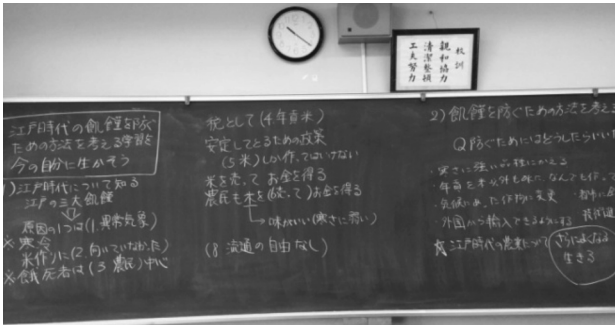 校訓
親和協力
清潔整頓
工夫努力
江戸時代の飢饉を防ぐ
ための方法を考える学習を
今の自分に生かそう
1)江戸時代について知る
江戸の三大飢饉
原因の1つは(1.異常気象)
※寒冷
米作りに(2.向いていなかった)
※餓死者は(3 農民)中心
税として(4年貢米)
安定してとるための政策
(5米)しか作ってはいけない
米を売って お金を得る
農民も米を(続って)お金を得る
味がいい(寒さに弱い)
(8 流通の自由なし)
2)飢饉を防ぐための方法を考え
Q防ぐためにはどうしたらいい
・寒さに強い
・年貢を米以外も
・気候にあった作物に変更
・外国から輸入できるようにする
江戸時代の農業について
さらによくなる
生きる